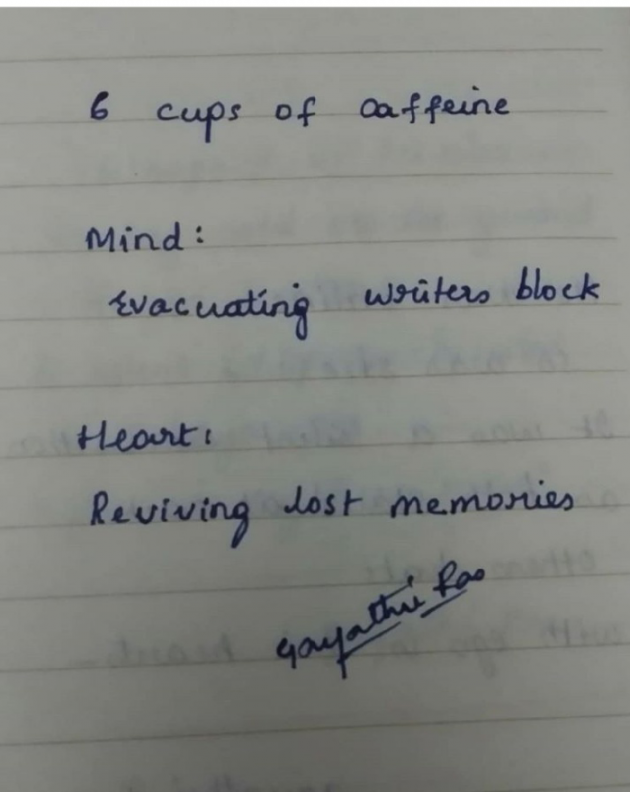 6 cups of caffeine
Mind:
Evacuating writers block
Heart:
Reviving lost memories
Gayathri Rao